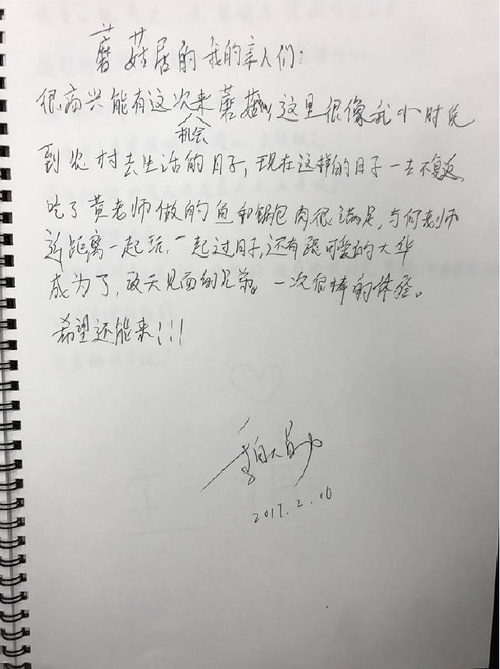 蘑菇居的我的亲人们:
很高兴能有这次来蘑菇 这里很像我小时候
机会
到农村去生活的日子,现在这样的日子一去不复返,
吃了黄老师做的鱼和锅包肉很满足,与何老师
近距离一起玩,一起过日子,还有跟可爱的大华
成为了,改天见面的兄弟。一次很棒的体验。
希望还能来!!!
2017.2.10